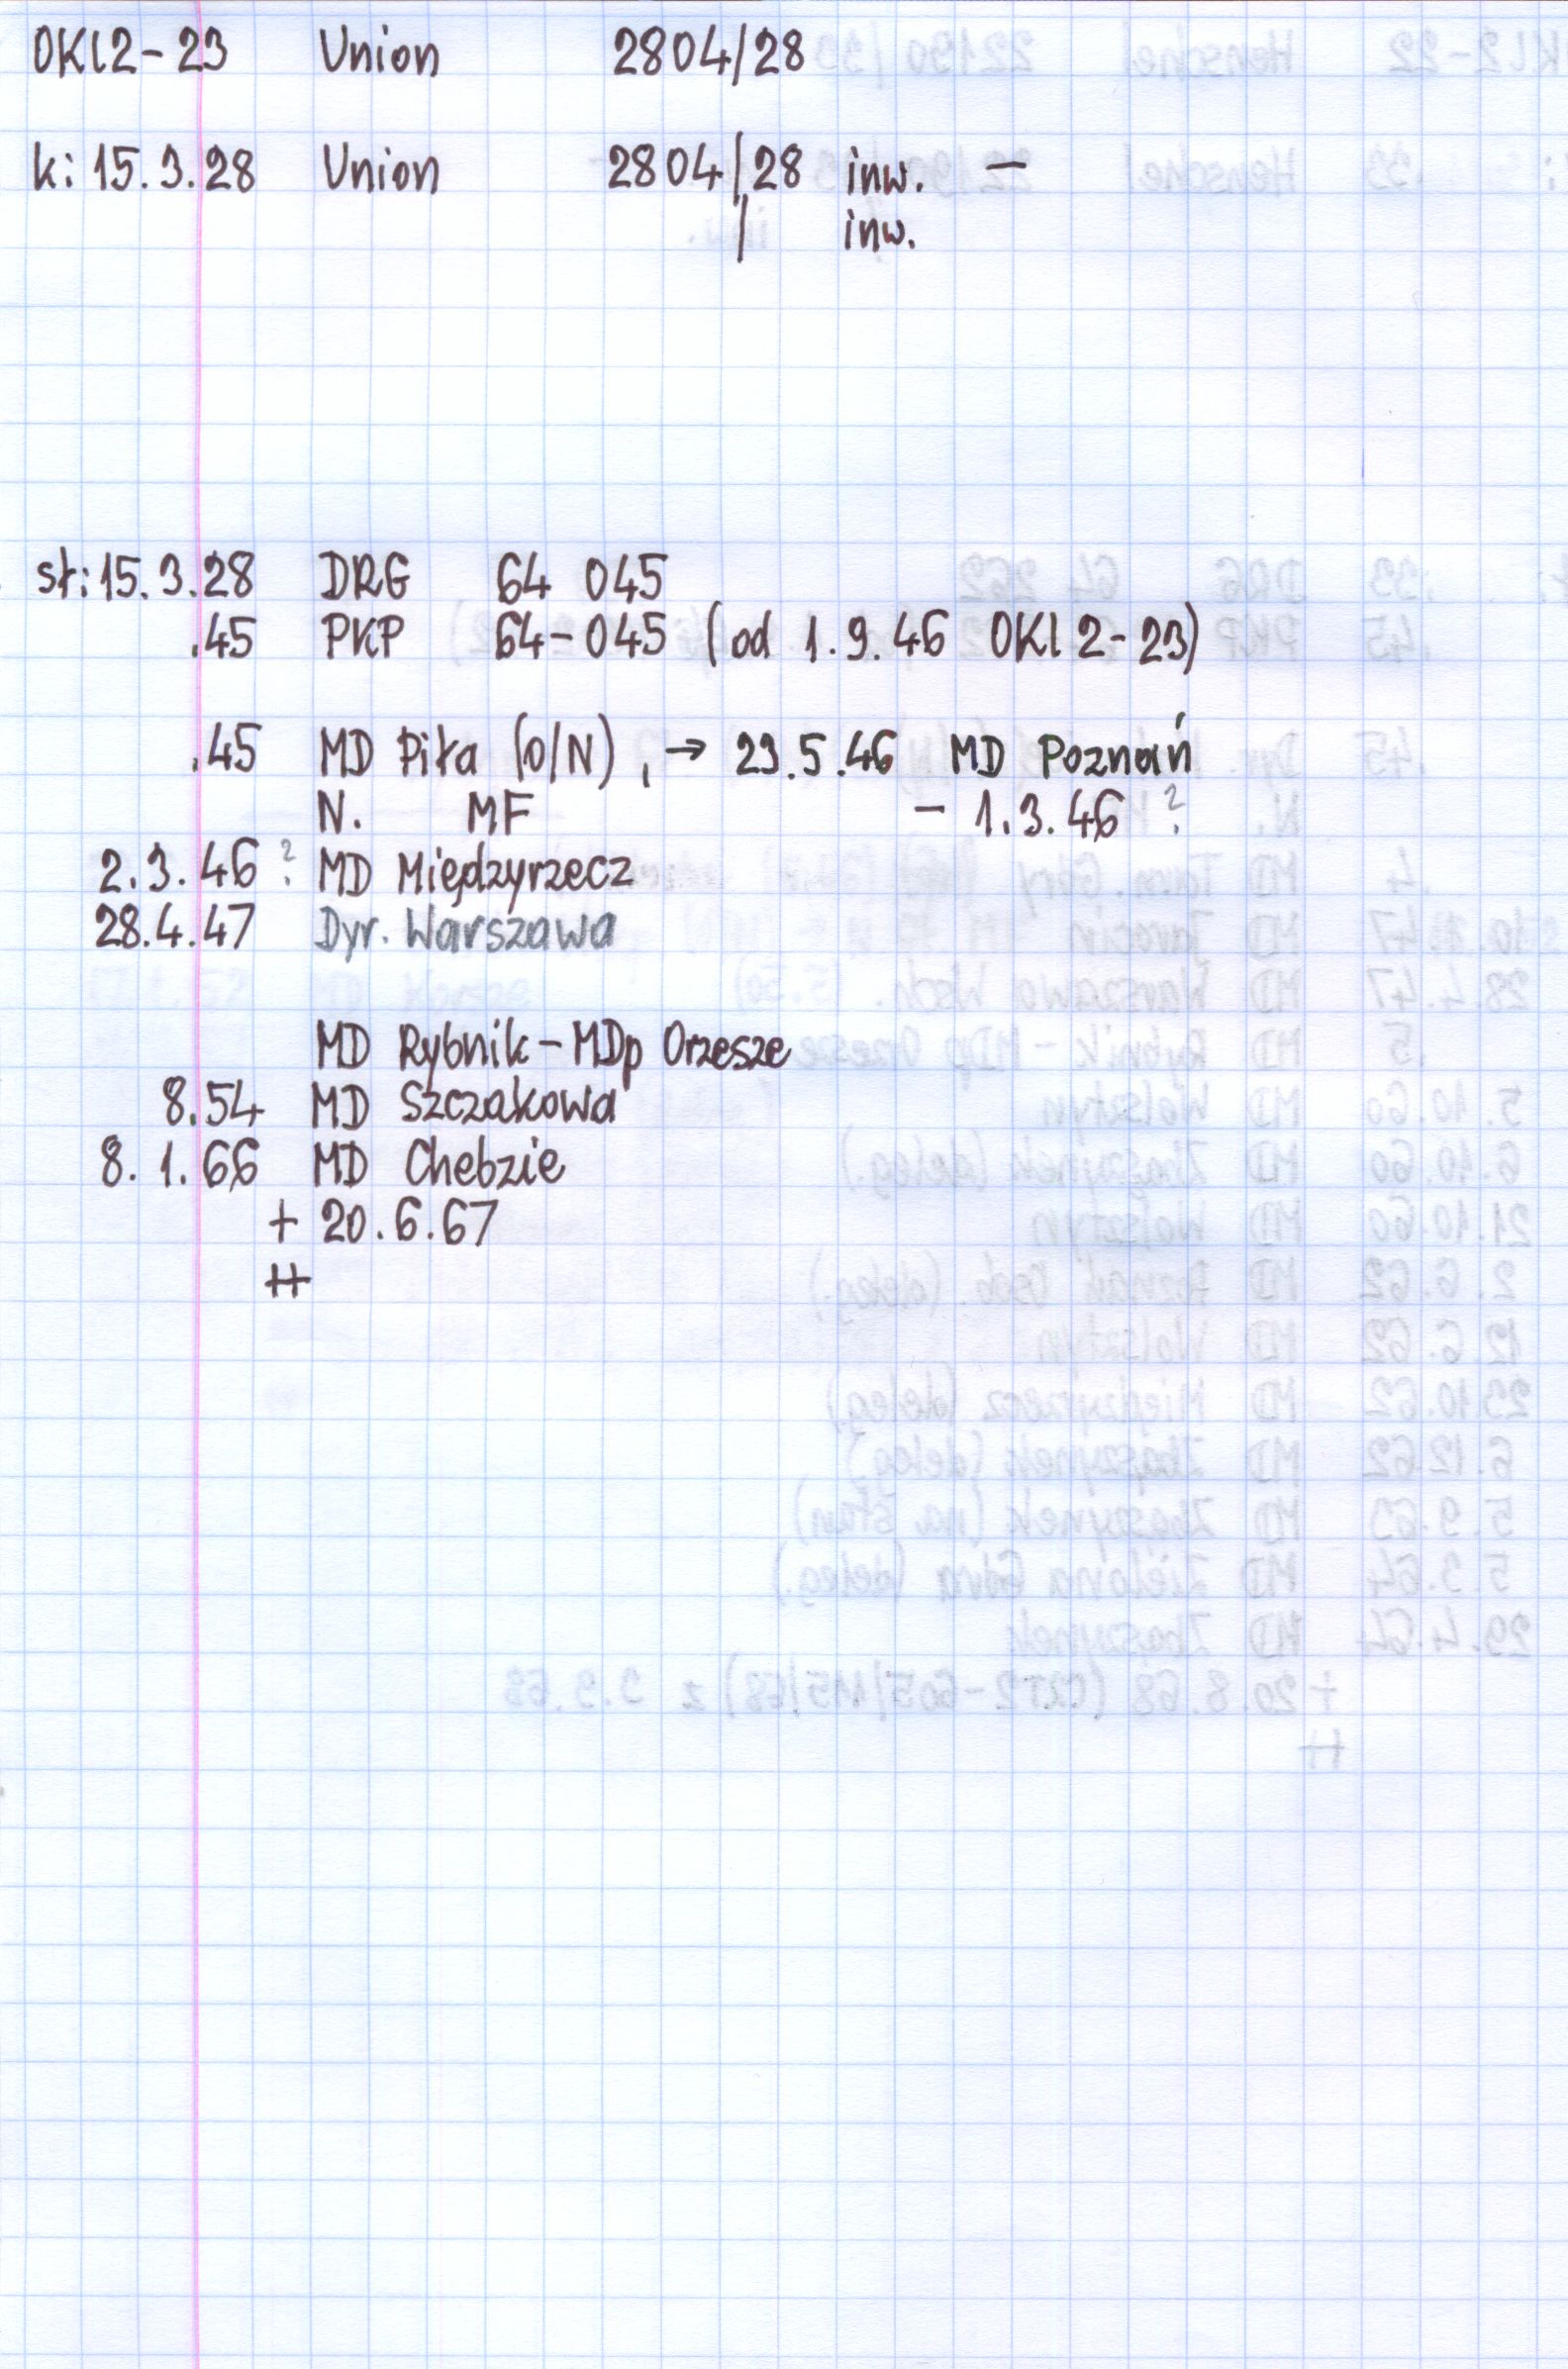 OKl2-23 Union 2804/28
k: 15.3.28 Union 2804/28 inw. —
/ inw.
sł: 15.3.28 DRG 64 045
.45 PKP 64-045 (od 1.9.46 OKl2-23)
.45 MD Piła (O/N), → 29.5.46 MD Poznań
N. MF - 1.3.46 ?
2.3.46 ? MD Międzyrzecz
28.4.47 Dyr. Warszawa
MD Rybnik - MDp Orzesze
8.54 MD Szczakowa
8.1.66 MD Chebzie
+ 20.6.67
++